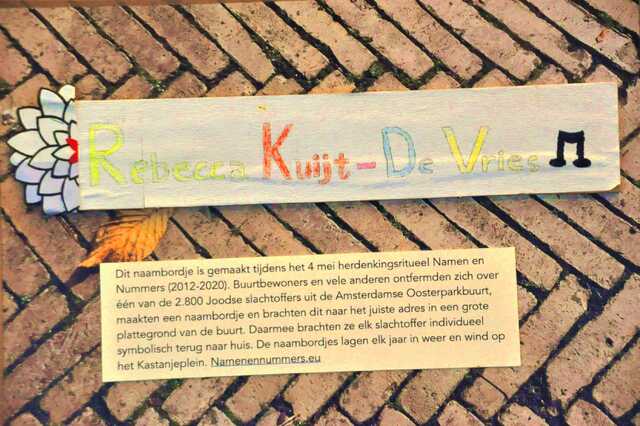 Rebecca Kuijt-De Vries
Dit naambordje is gemaakt tijdens het 4 mei herdenkingsritueel Namen en
Nummers (2012-2020). Buurtbewoners en vele anderen ontfermden zich over
één van de 2.800 Joodse slachtoffers uit de Amsterdamse Oosterparkbuurt,
maakten een naambordje en brachten dit naar het juiste adres in een grote
plattegrond van de buurt. Daarmee brachten ze elk slachtoffer individueel
symbolisch terug naar huis. De naambordjes lagen elk jaar in weer en wind op
het Kastanjeplein. Namenennummers.eu